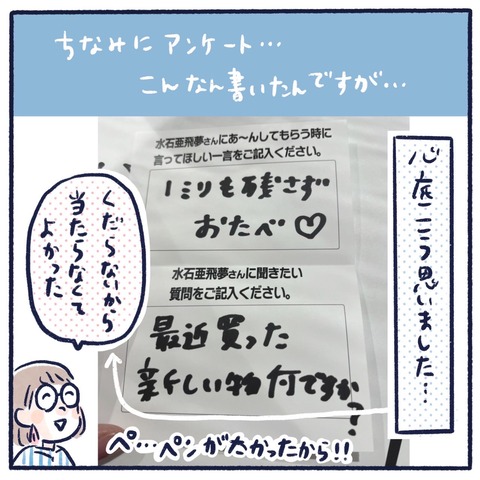 ちなみにアンケート…
こんなん書いたんですが…
水石亜飛夢さんにあ～んしてもらう時に
言ってほしい一言をご記入ください。
1ミリも残さず
おたべ♡
水石亜飛夢さんに聞きたい
質問をご記入ください。
最近買った
新しい物何ですか?
心底こう思いました…
くだらないから
当たらなくて
よかった
ペ…ペンが太かったから!!